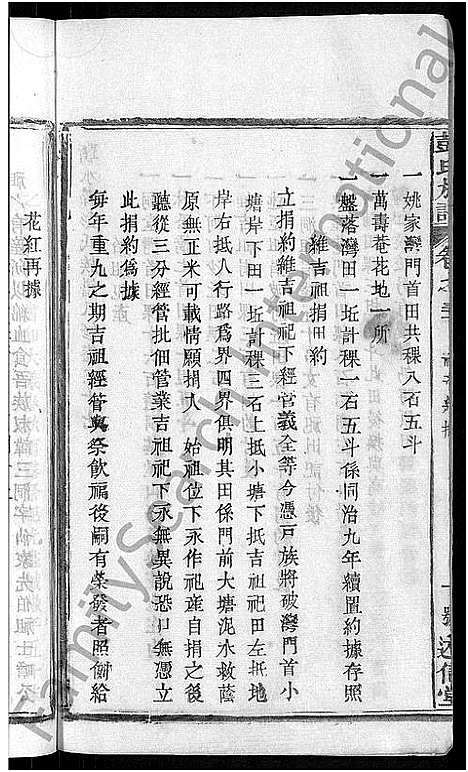 一姚家灣門首田共稞八石五斗
一萬壽菴花地一所
一盤落灣田一坵計稞一石五斗係同治九年續置約據存照
維吉祖捐田約
立捐約維吉祖祀下經官義全等今憑戸族將破灣門首小
塘岸下田一坵計稞三石上抵小塘下抵吉祖祀田左抵地
岸右抵八行路爲界四界俱明其田係門前大塘泥水救蔭
原無正米可載情願捐入 始祖位下永作祀産自捐之後
聽從三分經管批佃管業吉祖祀下永無異說恐口無憑立
此捐約爲據
每年重九之期吉祖經管與祭飲福後嗣有榮發者照衞給
花紅再據
FamilySearch International